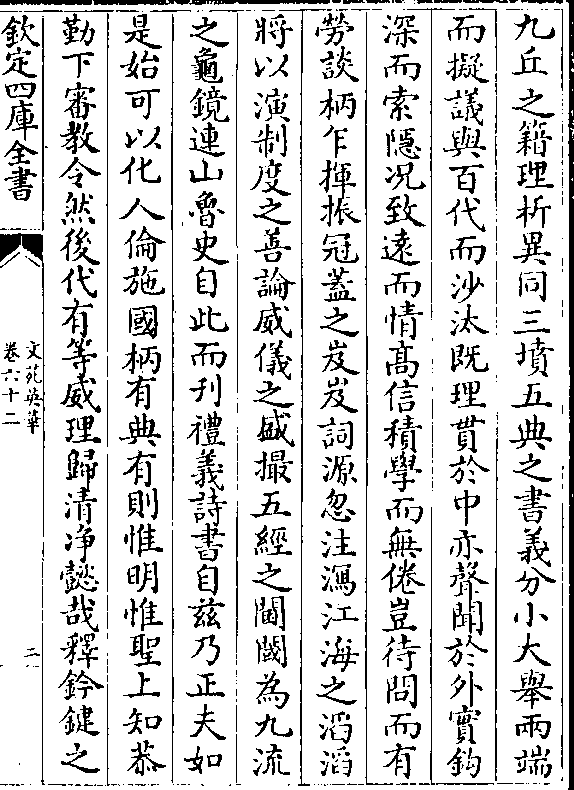 九丘之籍理析異同三墳五典之書義分小大舉兩端
而擬議與百代而沙汰既理貫於中亦聲聞於外實鈎
深而索隱况致遠而情高信積學而無倦豈待問而有
勞談柄乍揮振冠蓋之岌岌詞源忽注瀉江海之滔滔
將以演制度之善論威儀之盛撮五經之閫閾為九流
之龜鏡連山魯史自此而刊禮義詩書自兹乃正夫如
是始可以化人倫施國柄有典有則惟明惟聖上知恭
勤下審教令然後代有等威理歸清净懿哉釋鈐鍵之
欽定四庫全書
文苑英華
卷六十二
二